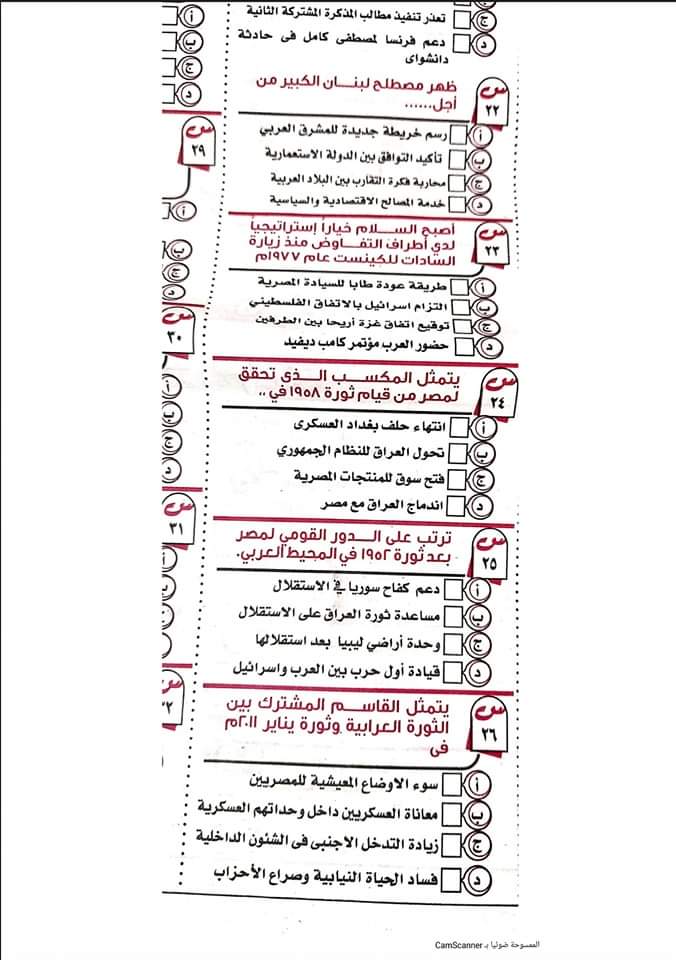 ج تعذر تنفيذ مطالب المذكرة المشتركة الثانية
د دعم فرنسا لمصطفى كامل فى حادثة
دانشواى
س ٢٢
ظهر مصطلح لبنان الكبير من
أجل......
أ رسم خريطة جديدة للمشرق العربي
ب تأكيد التوافق بين الدولة الاستعمارية
ج محاربة فكرة التقارب بين البلاد العربية
د خدمة المصالح الاقتصادية والسياسية
س ٢٣
أصبح السلام خياراً إستراتيجياً
لدي أطراف التفاوض منذ زيارة
السادات للكينست عام ١٩٧٧م
أ طريقة عودة طابا للسيادة المصرية
ب التزام اسرائيل بالاتفاق الفلسطيني
ج توقيع اتفاق غزة أريحا بين الطرفين
د حضور العرب مؤتمر كامب ديفيد
س ٢٤
يتمثل المكسب الذى تحقق
لمصر من قيام ثورة ١٩٥٨ في ..
أ انتهاء حلف بغداد العسكرى
ب تحول العراق للنظام الجمهوري
ج فتح سوق للمنتجات المصرية
د اندماج العراق مع مصر
س ٢٥
ترتب على الدور القومي لمصر
بعد ثورة ١٩٥٢ في المحيط العربي.
أ دعم كفاح سوريا في الاستقلال
ب مساعدة ثورة العراق على الاستقلال
ج وحدة أراضي ليبيا بعد استقلالها
د قيادة أول حرب بين العرب واسرائيل
س ٢٦
يتمثل القاسم المشترك بين
الثورة العرابية وثورة يناير ٢٠١١م
فى
أ سوء الاوضاع المعيشية للمصريين
ب معاناة العسكريين داخل وحداتهم العسكرية
ج زيادة التدخل الاجنبى فى الشئون الداخلية
د فساد الحياة النيابية وصراع الأحزاب
أ
ب
ج
د
س ٢٩
أ
ب
ج
د
س ٣٠
أ
ب
ج
د
س ٣١
الممسوحة ضوئيا بـ CamScanner